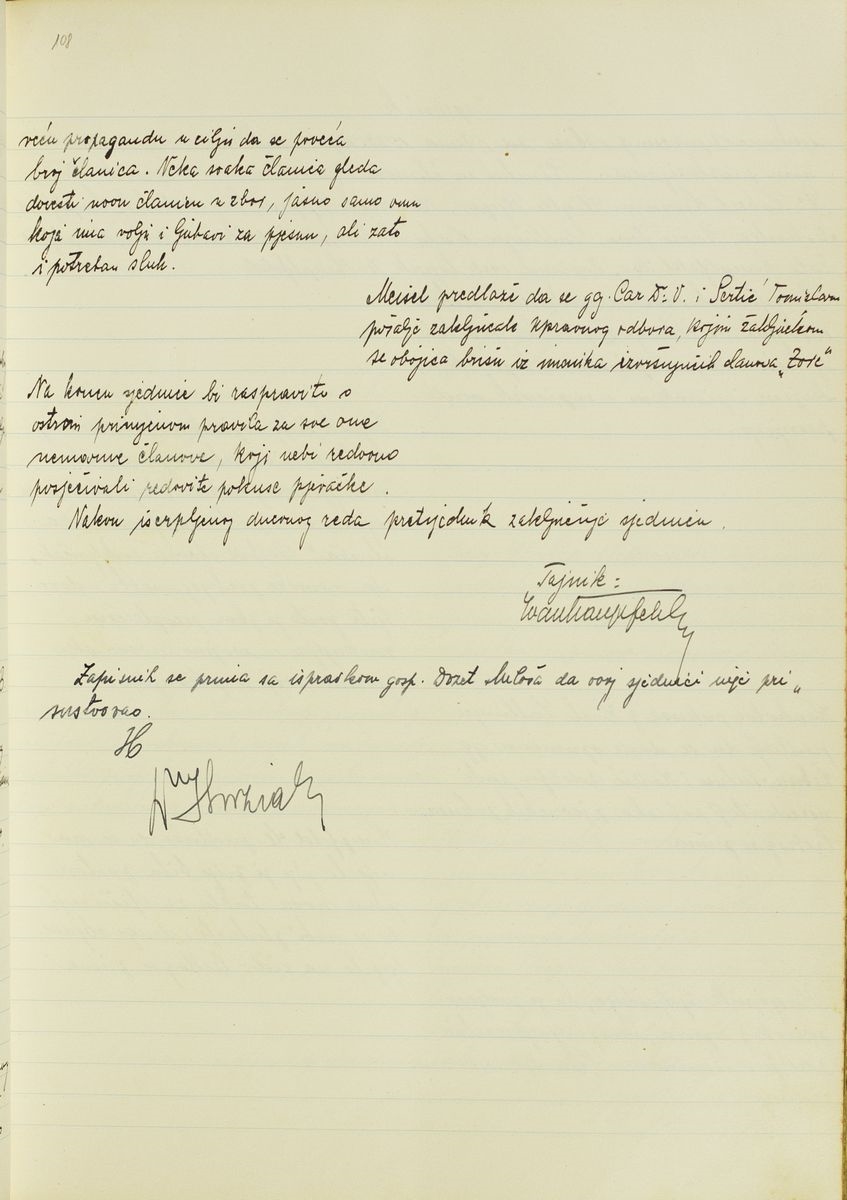 108
veću propagandu u cilju da se poveća
broj članica. Neka svaka članica gleda
dovesti novu članicu u zbor, jasno samo onu
koja ima volju i ljubavi za pjesmu, ali zato
i potreban sluh.
Meisel predlaže da se gg. Car Dr. V. i Sertić Tomislavu
pošalje zaključak upravnog odbora, kojim zaključkom
se obojica brišu iz imenika izvršujućih članova „Zore"
Na koncu sjednice bi raspravito o
ostroj primjenom pravila za sve one
nemarne članove, koji nebi redovno
posjećivali redovite pokuse pjevačke.
Nakon iscrpljenog dnevnog reda pretsjednik zaključuje sjednicu.
Tajnik:
Zapisnik se prima sa ispravkom gosp. Dozet Miloša da ovoj sjednici nije pri„
sustvovao.
H